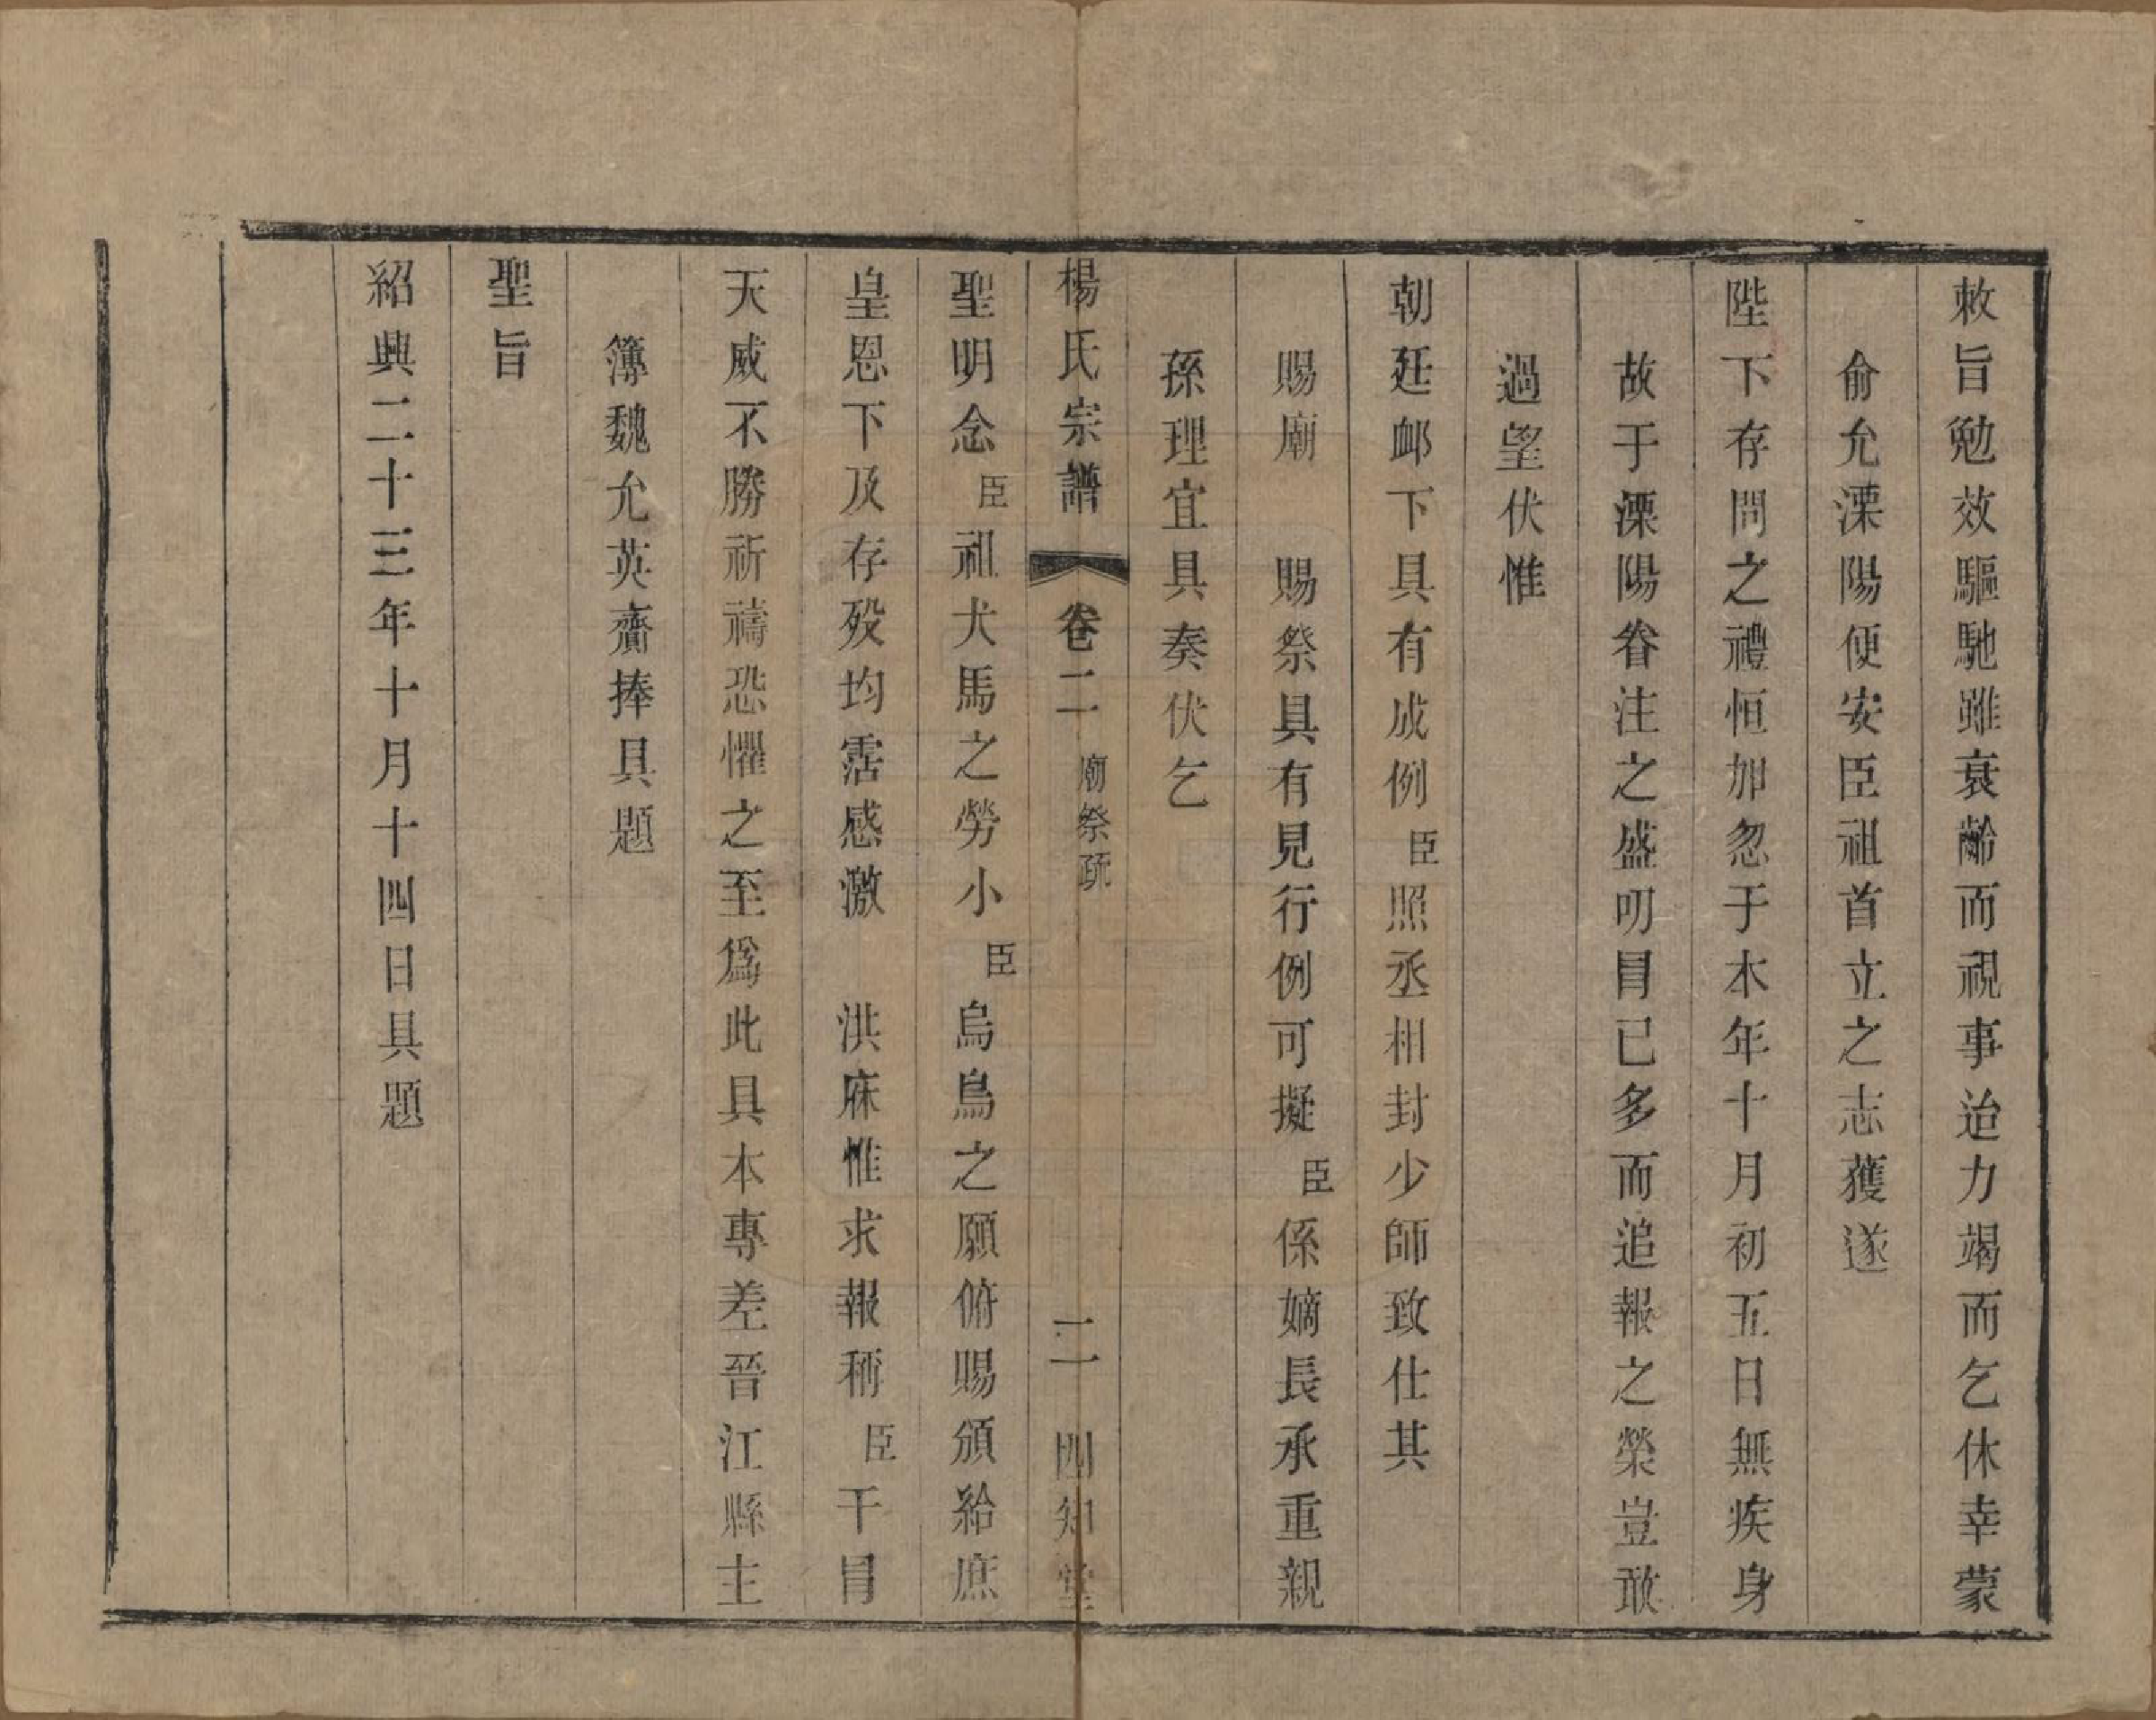 敕旨勉效驅馳雖衰齡而視事治力竭而乞休幸蒙
俞允溧陽便安臣祖首立之志獲遂
陛下存問之禮恒加忽于本年十月初五日無疾身
故于溧陽眷注之盛叨冐已多而追報之榮豈敢
過望伏惟
朝廷卹下具有成例臣照丞相封少師致仕其
賜廟　賜祭具有見行例可擬臣係嫡長承重親
孫理宜具奏伏乞
楊氏宗譜　卷二　廟祭疏　二　四知堂
聖明念臣祖犬馬之勞小臣烏鳥之願俯賜頒給庶
皇恩下及存殁均霑感激　洪庥惟求報稱臣干冐
天威不勝祈禱恐懼之至爲此具本專差晉江縣主
簿魏允英齎捧具題
聖旨
紹興二十三年十月十四日具題